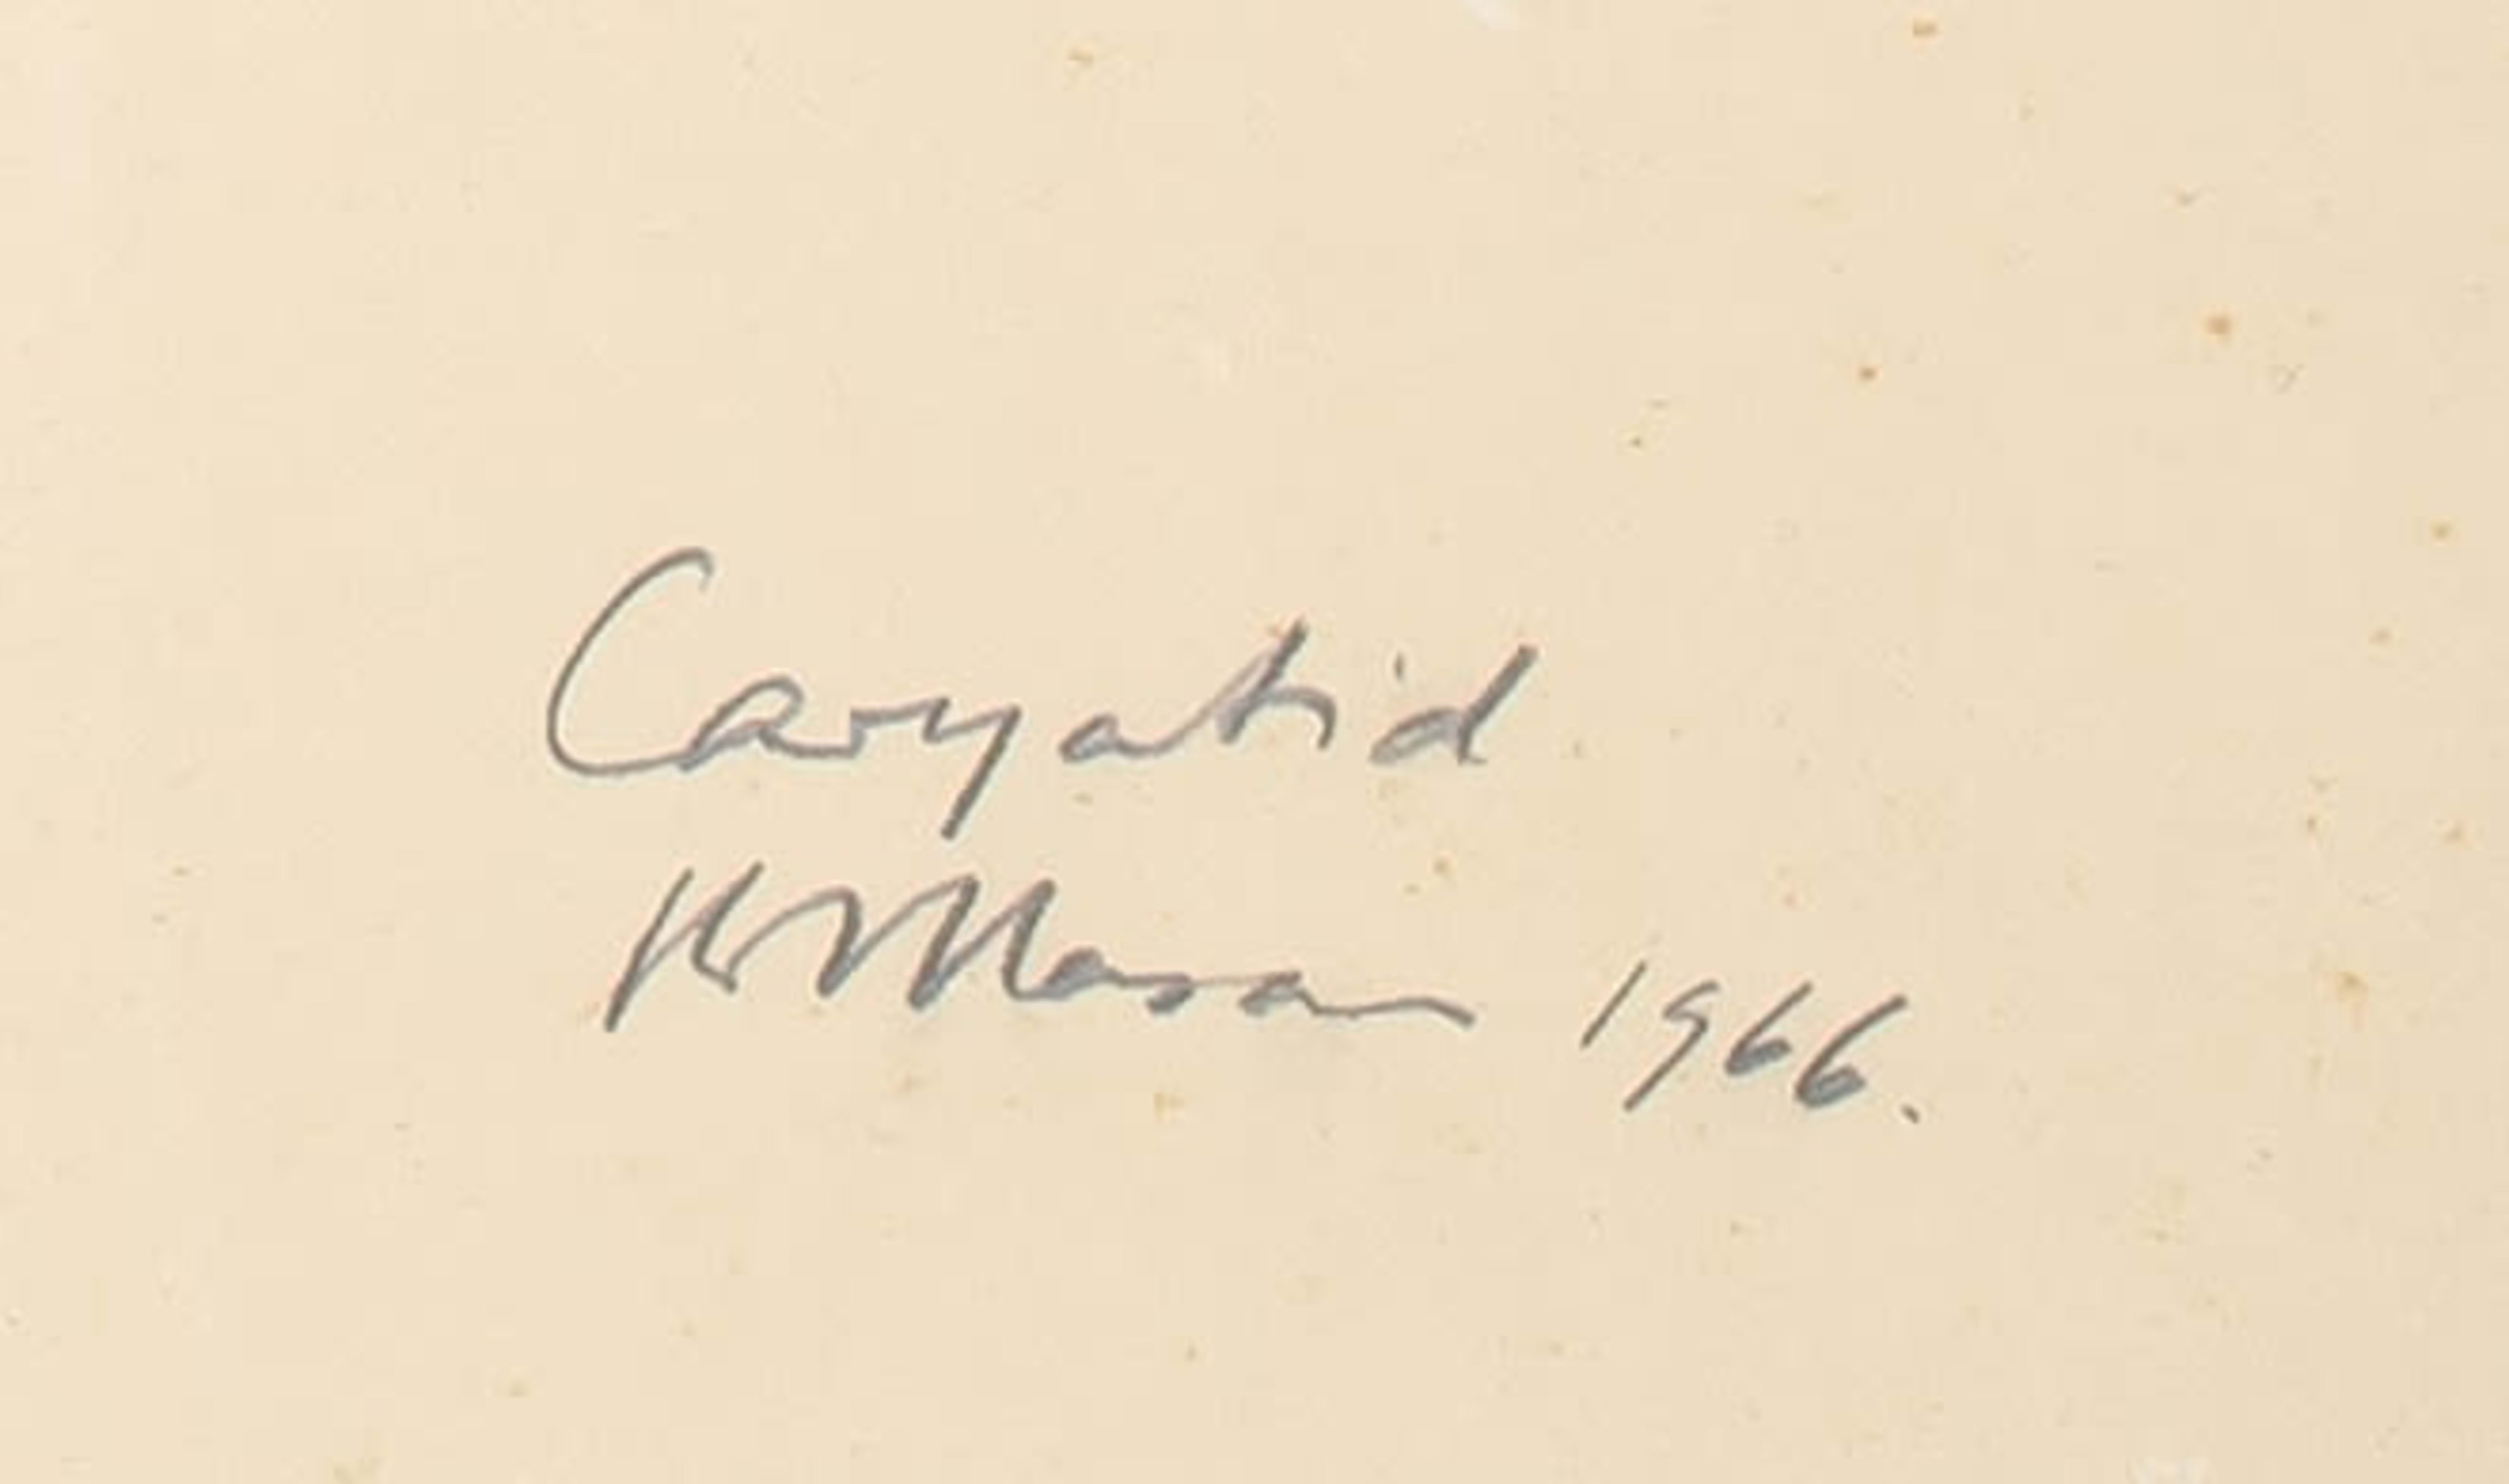 Caryatid
H Mason 1966.